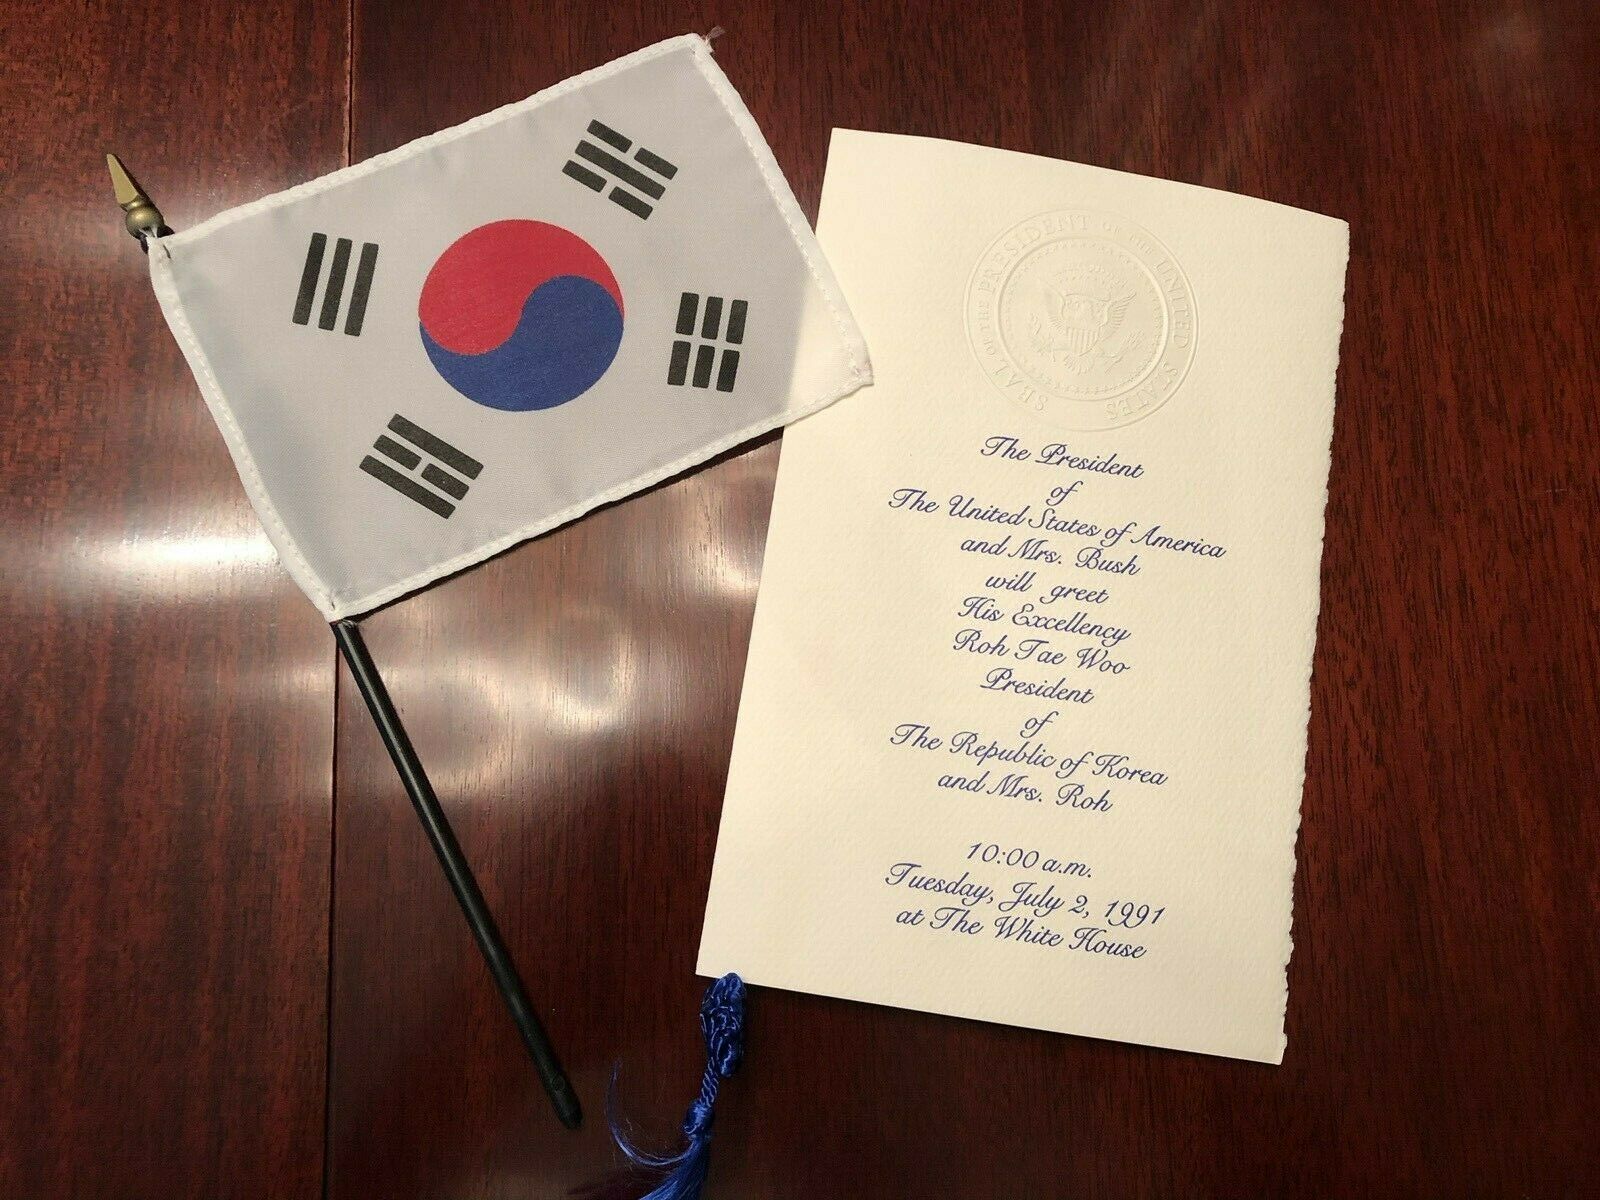 SEAL OF THE PRESIDENT OF THE UNITED STATES
The President
of
The United States of America
and Mrs. Bush
will greet
His Excellency
Roh Tae Woo
President
of
The Republic of Korea
and Mrs. Roh
10:00 a.m.
Tuesday, July 2, 1991
at The White House